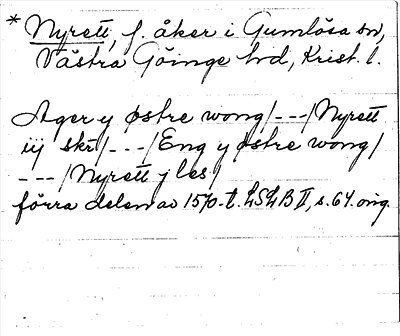 * Nyrett, f. åker i Gumlösa sn,
Västra Göinge hd, Krist. l.
Ager y østre wong/---/Nyrett
iij skr/---/Eng y østre wong/
---/Nyrett j les/
förra delen av 1570-t. LSLB II, s. 64. orig.